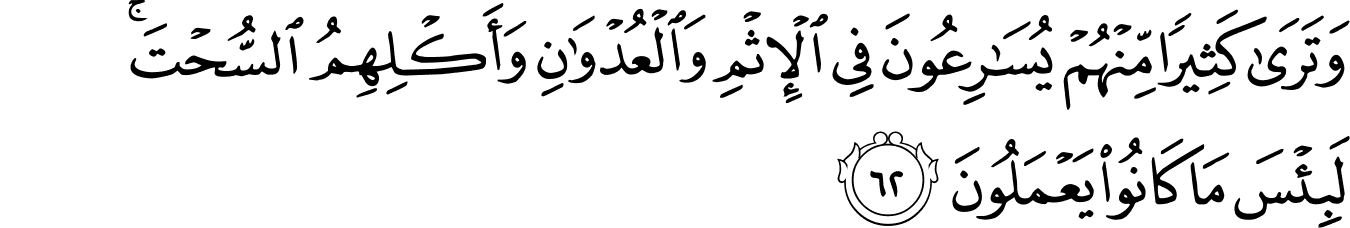 وَتَرَىٰ كَثِيرًا مِّنْهُمْ يُسَـٰرِعُونَ فِى ٱلْإِثْمِ وَٱلْعُدْوَٰنِ وَأَكْلِهِمُ ٱلسُّحْتَ ۚ
لَبِئْسَ مَا كَانُوا۟ يَعْمَلُونَ ٦٢